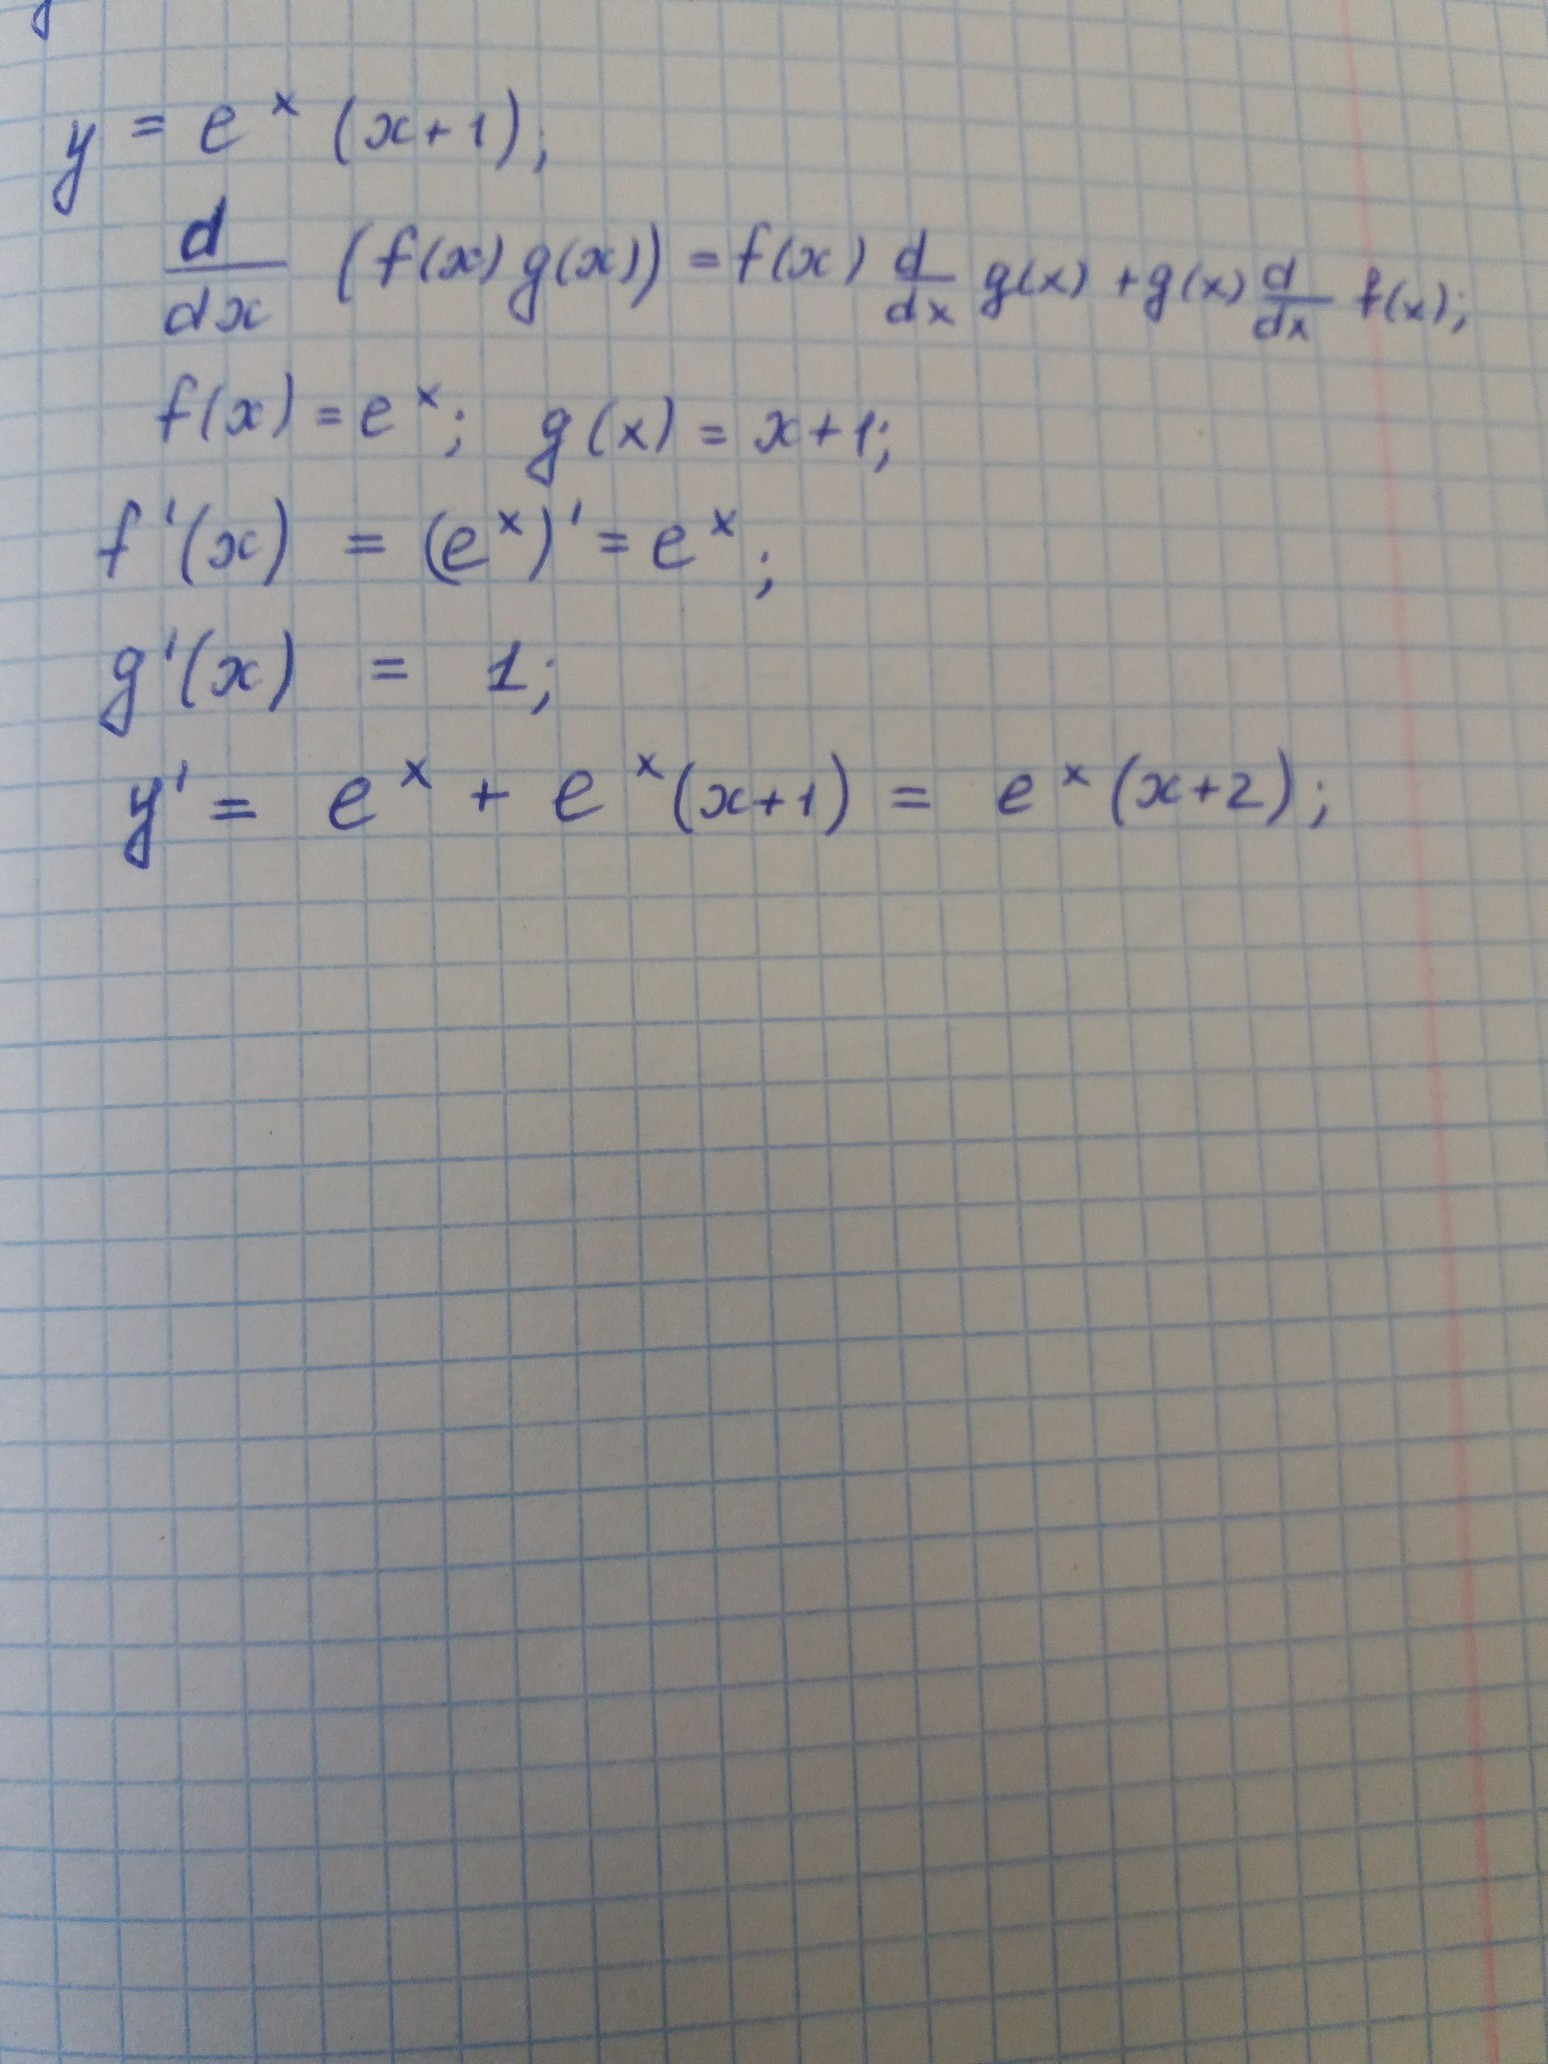 y = e^x (x+1);
d/dx (f(x) g(x)) = f(x) d/dx g(x) + g(x) d/dx f(x);
f(x) = e^x; g(x) = x+1;
f'(x) = (e^x)' = e^x;
g'(x) = 1;
y' = e^x + e^x (x+1) = e^x (x+2);